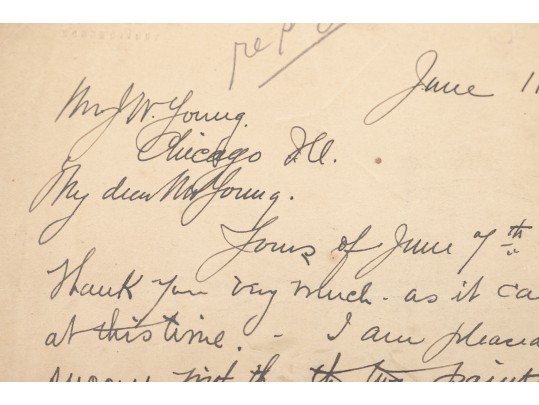 June 1
Mr J. W. Young.
Chicago Ill.
My dear Mr Young.
Yours of June 7th
Thank you very much - as it ca
at this time. - I am pleased